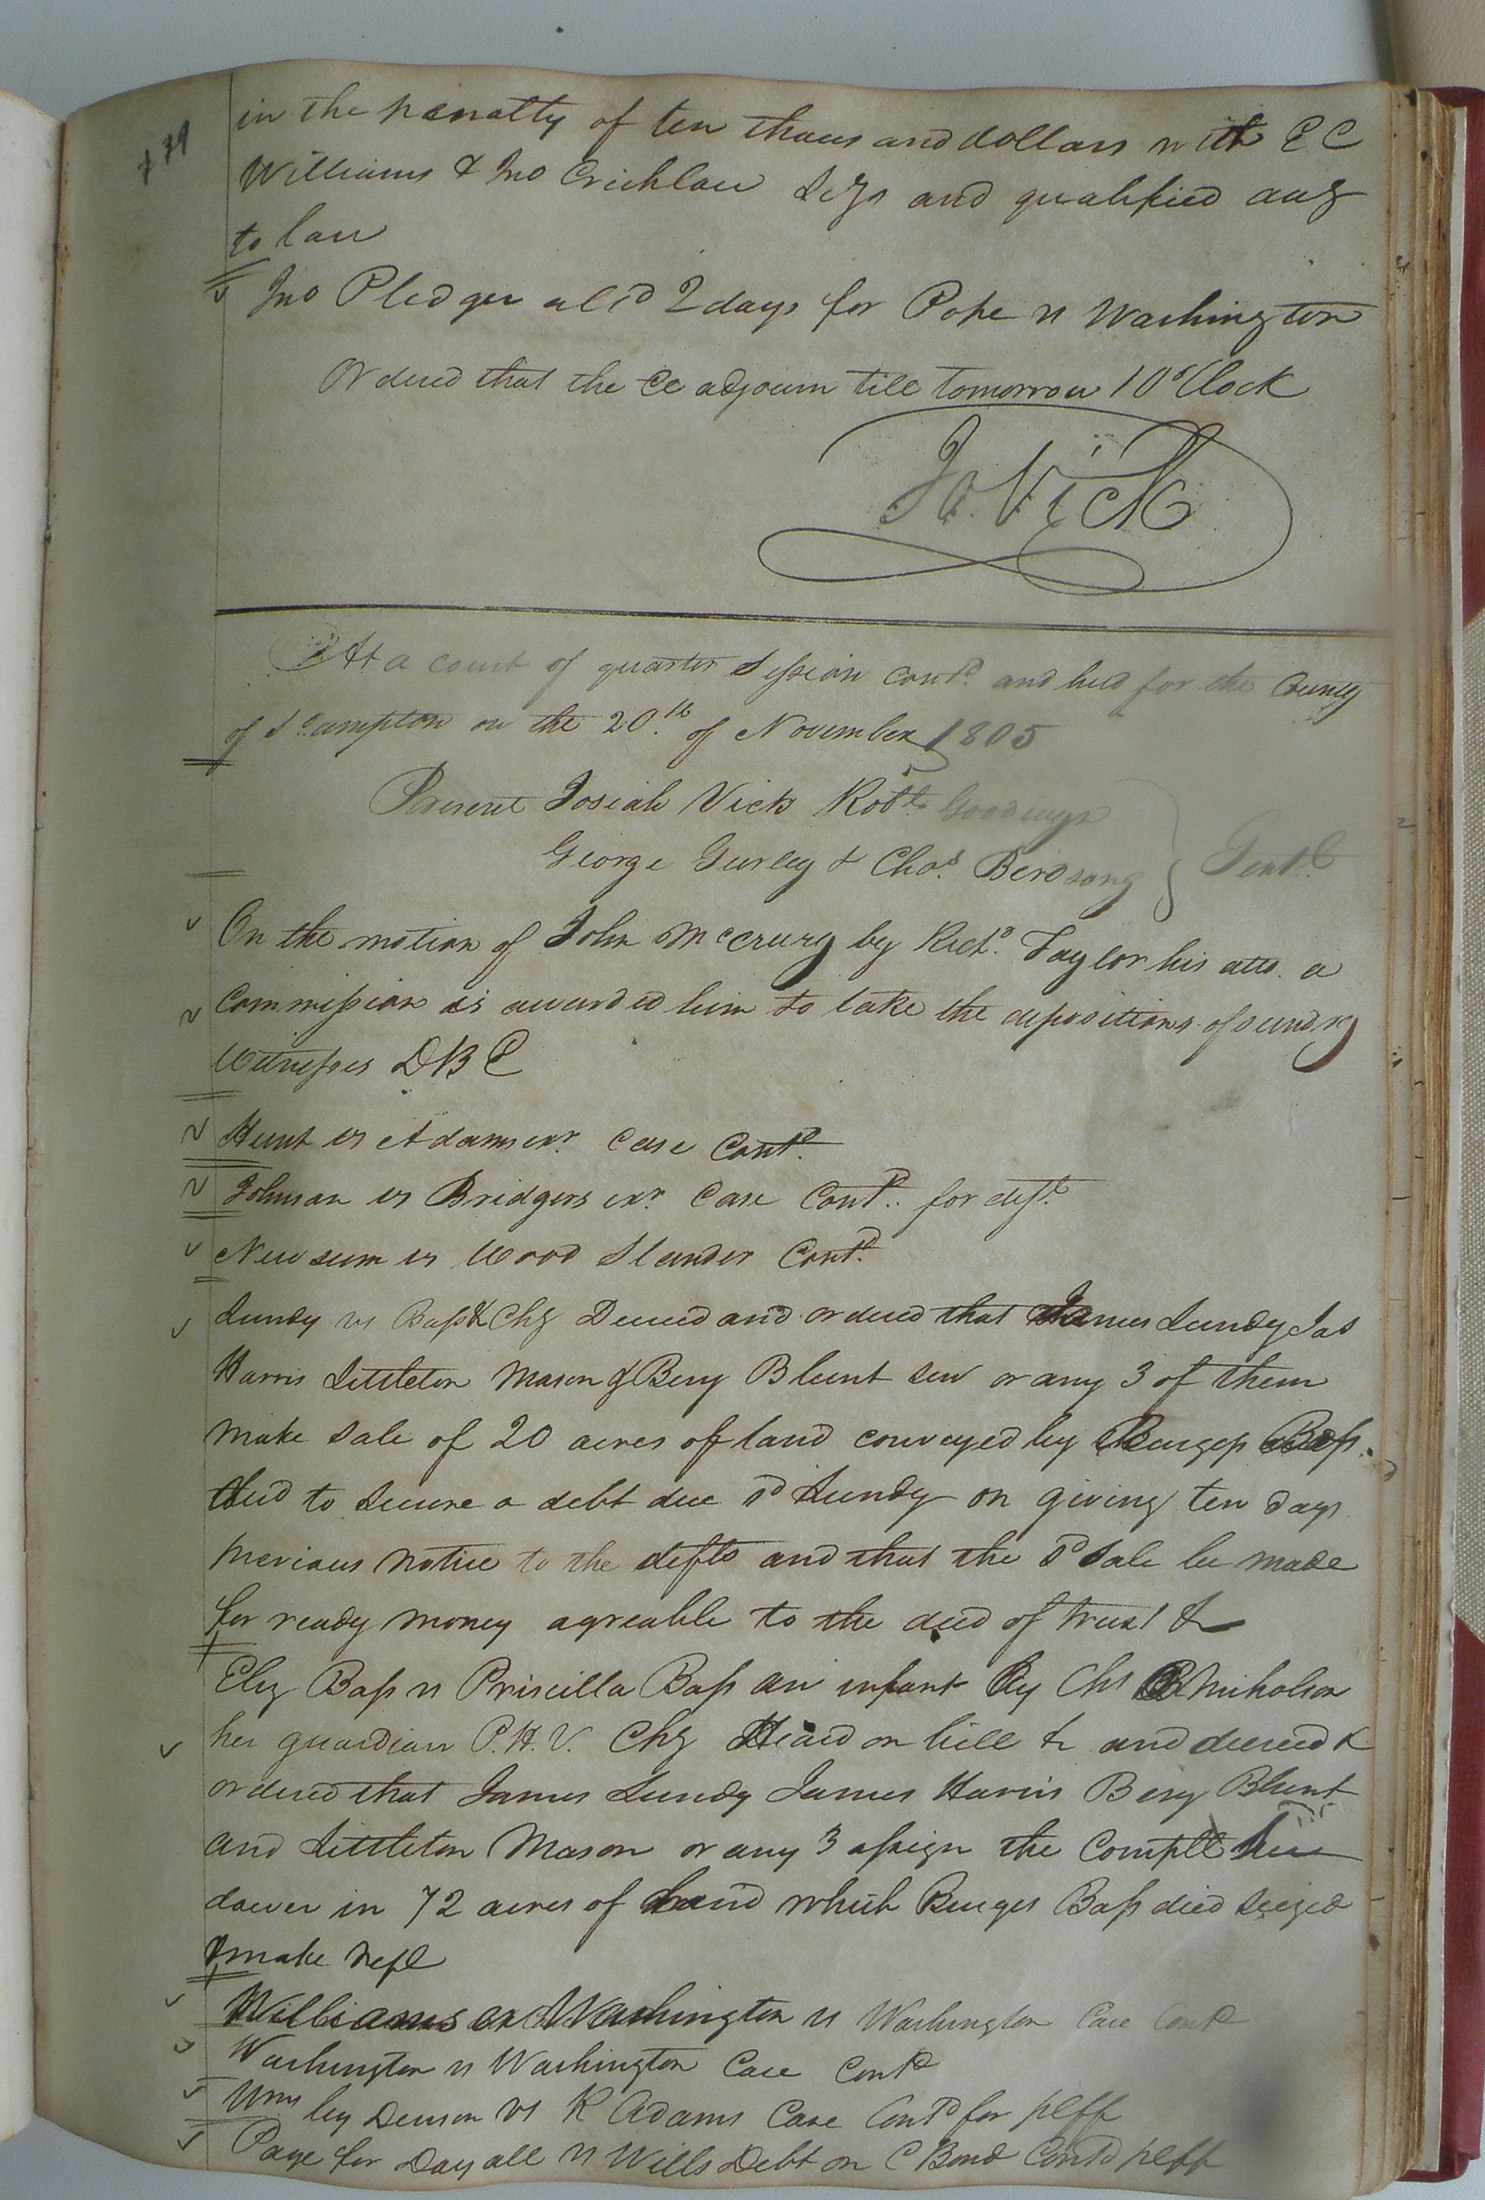 in the penalty of ten thousand dollars with E C
Williams & Jno Crichlow Secys and qualified accg
to law
Jno Pledger al'd 2 days for Pope vs Washington
Ordered that the Ct adjourn till tomorrow 10 oClock
Jo. Vick
At a court of quarter Session Contd. and held for the County
of So.ampton on the 20.th of November 1805
Present Josiah Vick Robt. Goodwyn
George Gurley & Chas. Birdsong } Gentl.
On the motion of John McCrury by Richd. Taylor his atto. a
Commission is awarded him to take the depositions of sundry
Witnesses DBE
Hunt vs Adams exr. Case Contd.
Johnson vs Bridgers exr. Case Contd. for deft.
Newsum vs Wood Slander Contd.
Lundy vs Bass Chy Decreed and ordered that James Lundy Jas
Harris Littleton Mason & Benj Blunt sen or any 3 of them
make sale of 20 acres of land conveyed by Burgess Bass
decd to secure a debt due sd Lundy on giving ten days
previous notice to the defts and that the sd sale be made
for ready money agreable to the deed of trust &
Eliz Bass vs Priscilla Bass an infant by Chs B Nicholson
her guardian P.H.V. Chy Heard on bill &c and decreed &
ordered that James Lundy James Harris Benj Blunt
and Littleton Mason or any 3 assign the Complt her
dower in 72 acres of land which Burges Bass died seized
& make rept
Williams ex Washington vs Washington Case Contd
Washington vs Washington Case Contd
Wms by Denson vs R Adams Case Contd for plff
Page for Day all vs Wills Debt on C Bond Contd plff